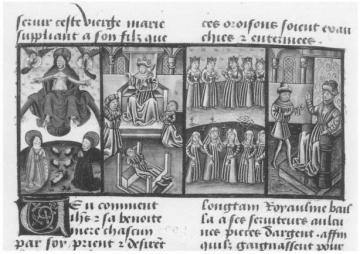 seruir ceste vierge marie
suppliant a son filz que
ces oroisons soient exau
chies ⁊ enterinees.
VEu comment
ihs ⁊ sa benoite
mere chascun
par soy prient ⁊ desirēt
longtain Royaulme bail
la a ses seruiteurs aulcu
nes pieces dargent. affin
quilz gaignassent pour